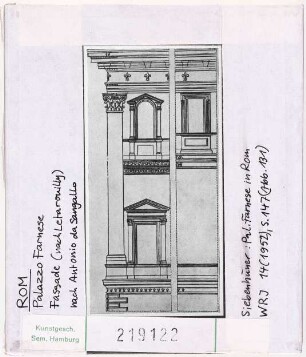 ROM
Palazzo Farnese
Fassade (nach Letarouilly)
nach Antonio da Sangallo
Siebenhüner: Pal. Farnese in Rom
WRJ 14 (1952), S. 147 (Abb. 131)
Kunstgesch.
Sem. Hamburg
219122